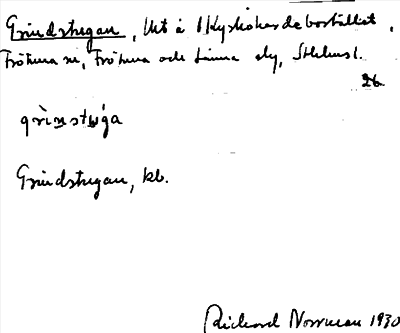 Grindstugan, litt å Kyrkoherdebostället,
Frötuna sn, Frötuna och Länna skg, Sthlms l.
26
grìnstu̇́ga
Grindstugan, kb.
Richard Norrman 1930